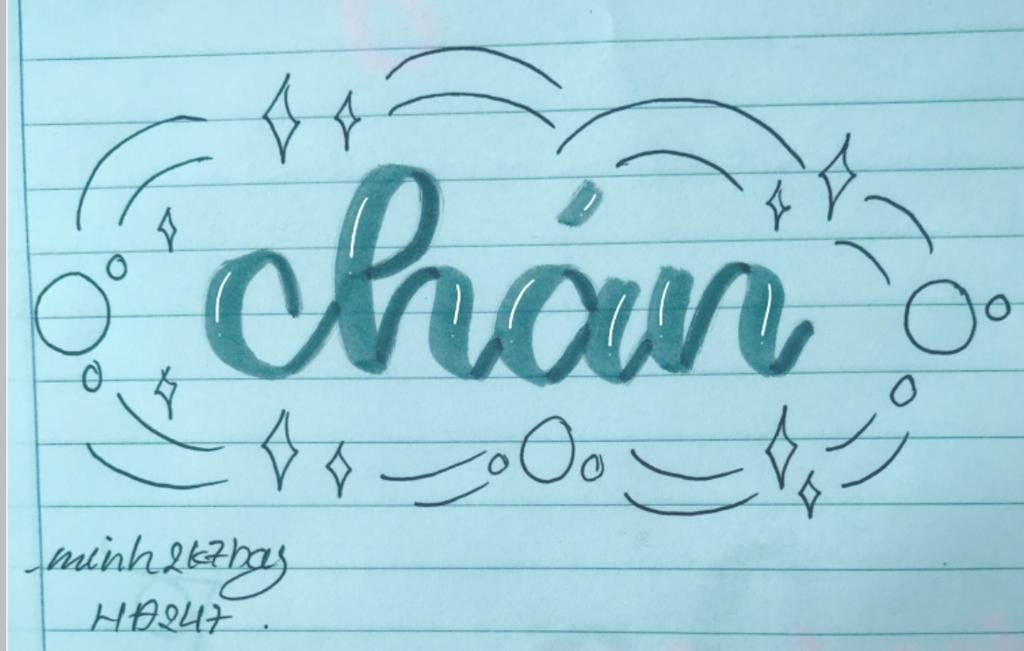 chán
minh2k7bag
HĐ247.